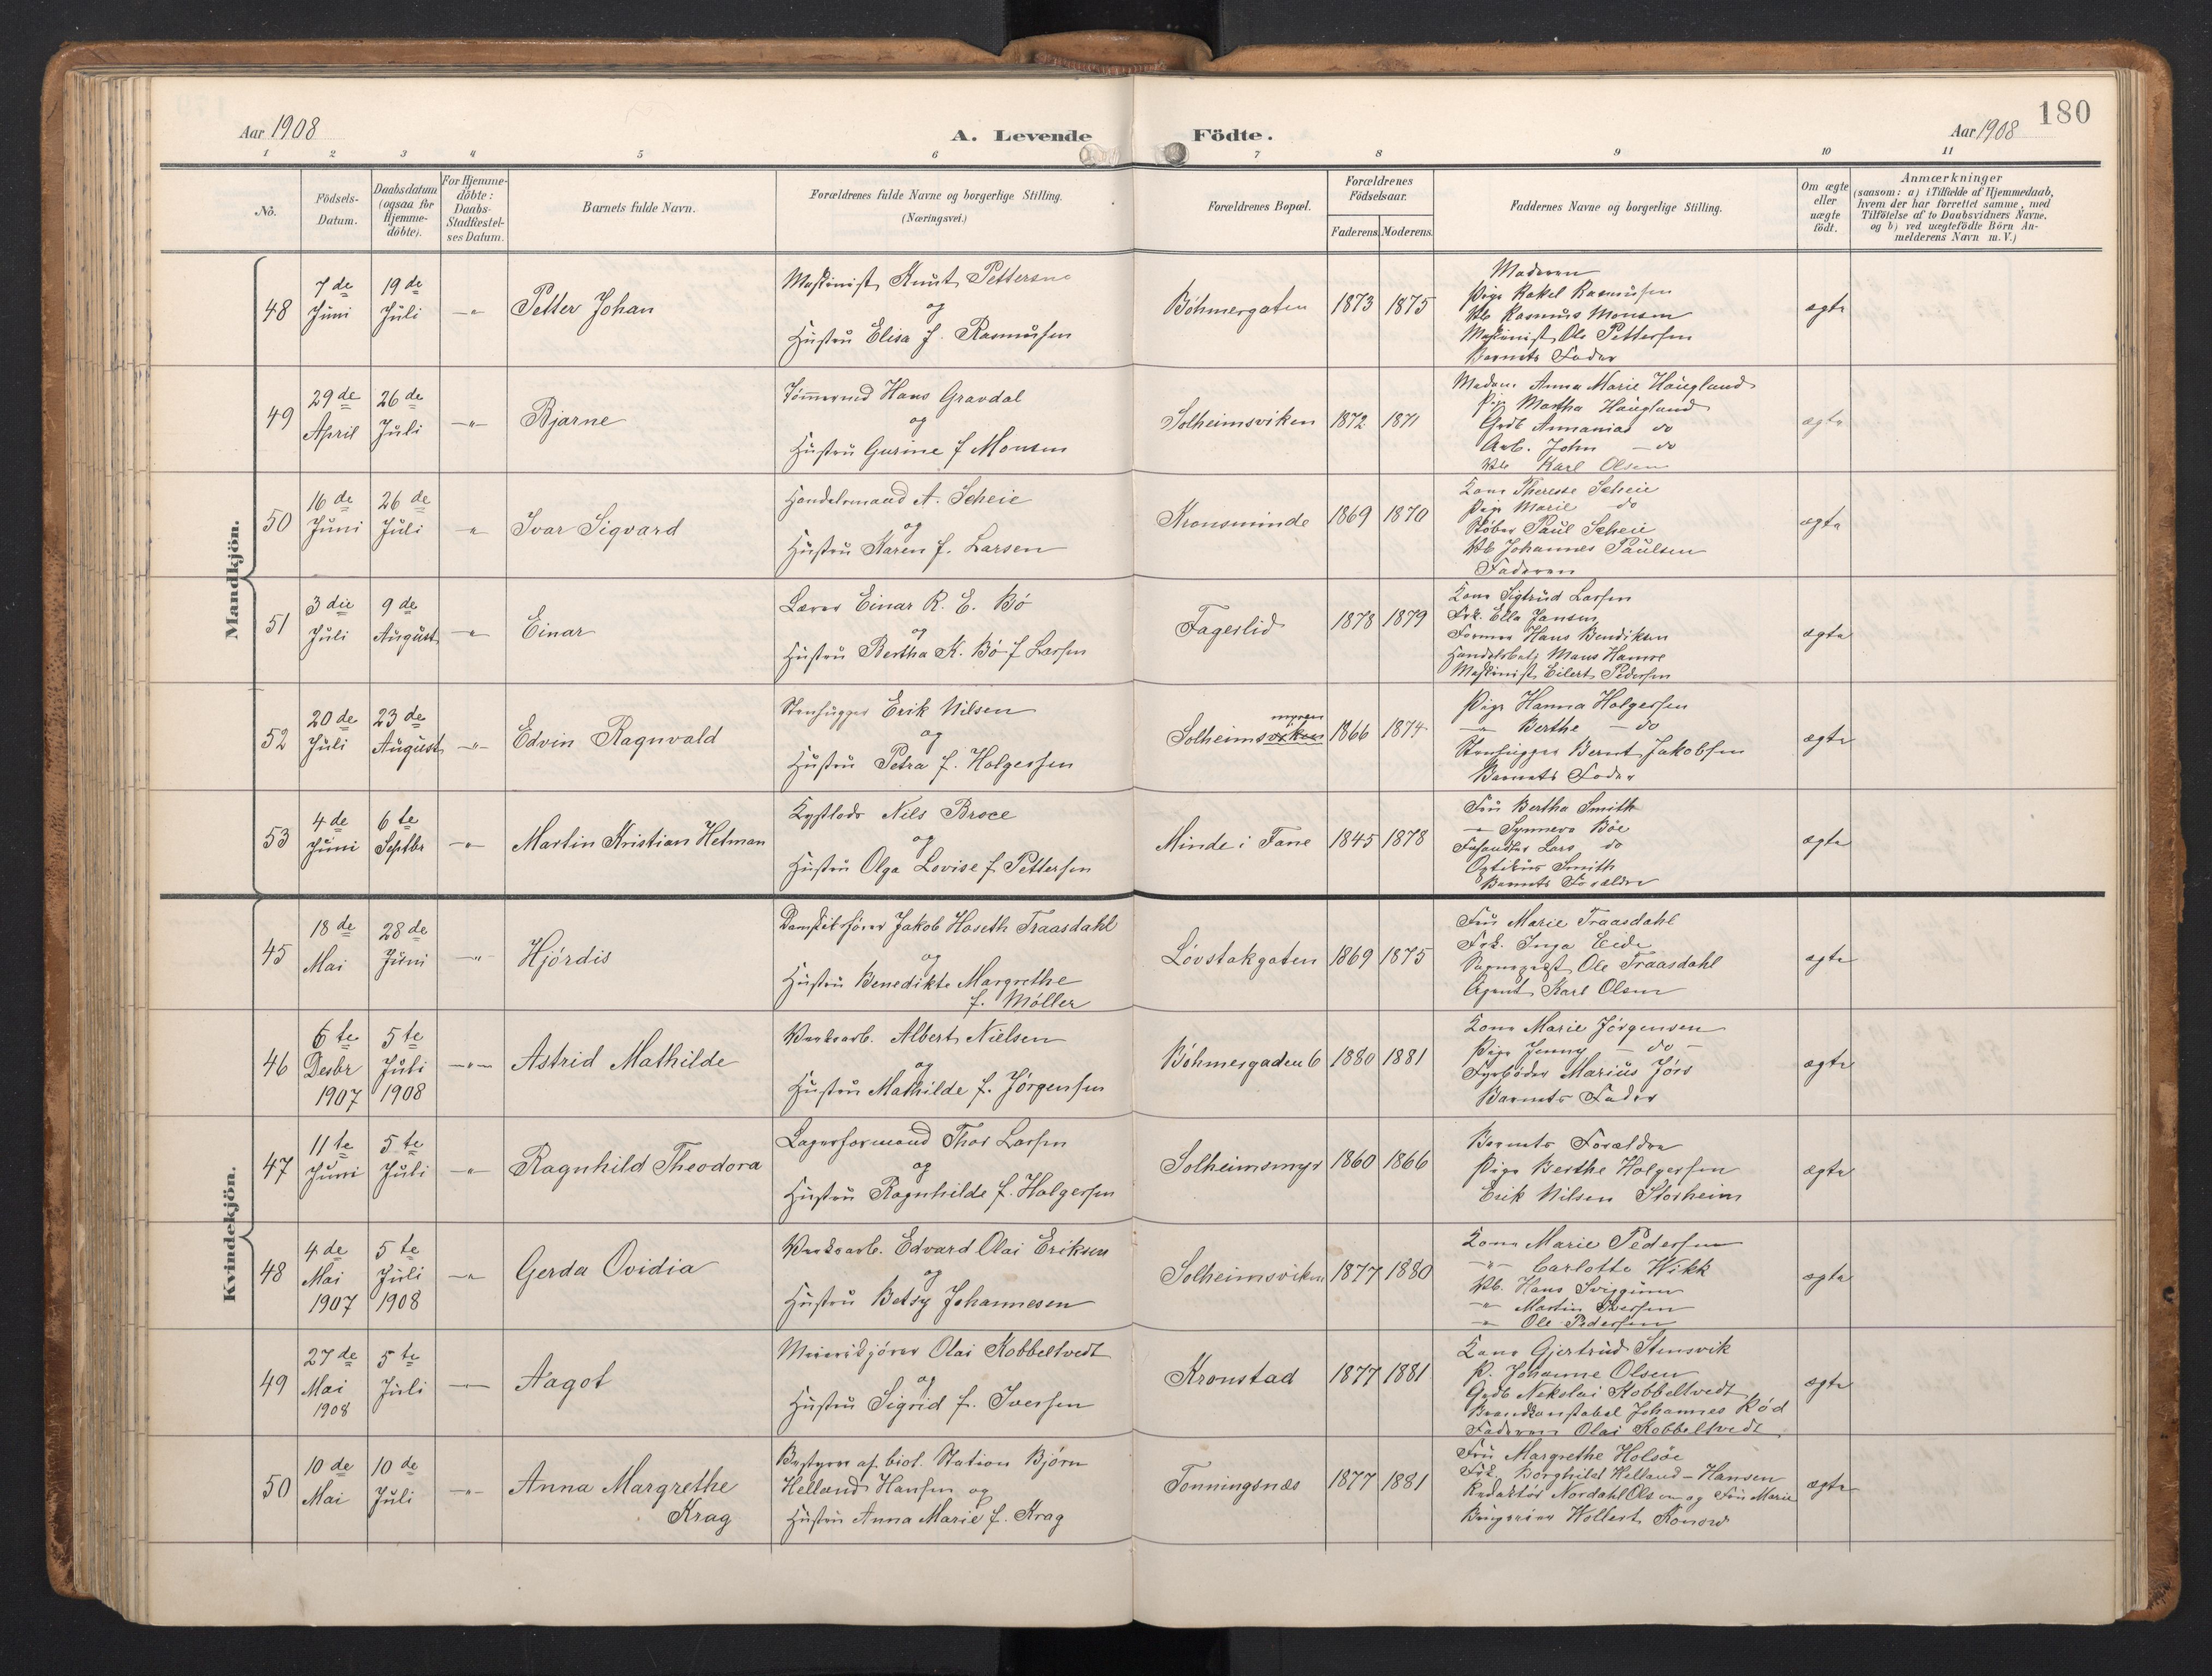 180
Aar 1908
A. Levende Födte.
Aar 1908
1 2 3 4 5 6 7 8 9 10 11
No.
Födsels-
Datum.
Daabsdatum
(ogsaa for
Hjemme-
döbte).
For Hjemme-
döbte:
Daabs-
Stadfæstel-
ses Datum.
Barnets fulde Navn.
Forældrenes fulde Navne og borgerlige Stilling.
(Næringsvei.)
Forældrenes Bopæl.
Forældrenes
Födselsaar.
Faderens. Moderens.
Faddernes Navne og borgerlige Stilling.
Om ægte
eller
uægte
födt.
Anmærkninger
(saasom: a) i Tilfælde af Hjemmedaab,
hvem der har forrettet samme, med
Tilföielse af to Daabsvidners Navne,
og b) ved uægtefödte Börn An-
melderens Navn m. V.)
Mandkjön.
48
7de
Juni
19de
Juli
-"-
Petter Johan
Maskinist Knut Pettersen
og
Hustru Elisa f. Rasmusen
Böhmergaten
1873 1875
Moderen
Pige Rakel Rasmusen
Rasmus Monsen
Maskinist Ole Pettersen
Barnets Fader
ægte
49
29de
April
26de
Juli
-"-
Bjarne
Tømmermd Hans Gravdal
og
Hustru Gurine f Monsen
Solheimsviken
1872 1871
Madam Anna Marie Haugland
Pige Martha Haugland
Grdb Annanias do
Arb. John - do
Karl Olsen
ægte
50
16de
Juni
26de
Juli
"
Ivar Sigvard
Handelsmand A. Scheie
og
Hustru Karen f. Larsen
Kronsminde
1869 1870
Kone Therese Scheie
Pige Marie do
Støber Paul Scheie
Johannes Paulsen
Faderen
ægte
51
3die
Juli
9de
August
-"-
Einar
Lærer Einar R. E. Bö
og
Hustru Bertha K. Bö f Larsen
Fagerlid
1878 1879
Kone Sigtrud Larsen
Frk. Ella Jansen
Former Hans Bendiksen
Handelsbetj Mans Hamre
Maskinist Eilert Pedersen
ægte
52
20de
Juli
23de
August
-"-
Edvin Ragnvald
Stenhugger Erik Nilsen
og
Hustru Petra f. Holgersen
myren
Solheimsviken
1866 1874
Pige Hanna Holgersen
-"- Berthe - do
Stenhugger Bernt Jakobsen
Barnets Fader
ægte
53
4de
Juni
6te
Septbr
-"-
Martin Kristian Hetman
Kystlods Nils Broce
og
Hustru Olga Lovise f Pettersen
Minde i Fane
1845 1878
Fru Bertha Smith
-"- Synneva Böe
Lars do
Optikus Smith
Barnets Forældre
ægte
Kvindekjön.
45
18de
Mai
28de
Juni
-"-
Hjördis
Dampskibsfører Jakob Hoseth Traasdahl
og
Hustru Benedikte Margrethe
f. Möller
Lövstakgaten
1869 1875
Fru Marie Traasdahl
Frk. Inga Eide
Ole Traasdahl
Agent Karl Olsen
ægte
46
6te
Desbr
1907
5te
Juli
1908
-"-
Astrid Mathilde
Verksarb. Albert Nielsen
og
Hustru Mathilde f. Jörgensen
Böhmergaden 6
1880 1881
Kone Marie Jörgensen
Pige Jenny - do -
Fyrböder Marius Jörs
Barnets Fader
ægte
47
11te
Juni
5te
Juli
-"-
Ragnhild Theodora
Lagerformand Thor Larsen
og
Hustru Ragnhilde f. Holgersen
Solheimsmyr
1860 1866
Barnets Forældre
Pige Berthe Holgersen
Erik Nilsen Storheim
ægte
48
4de
Mai
1907
5te
Juli
1908
-"-
Gerda Ovidia
Verksarb. Edvard Olai Eriksen
og
Hustru Betsy Johannesen
Solheimsviken
1877 1880
Kone Marie Pedersen
-"- Carlotte Wikk
Hans
-"- Martin Iversen
-"- Ole Pedersen
ægte
49
27de
Mai
1908
5te
Juli
Aagot
Meierikjører Olai Kobbeltvedt
og
Hustru Sigrid f. Iversen
Kronstad
1877 1881
Kone Gjertrud Stensvik
P. Johanne Olsen
Grdb Nikolai Kobbeltvedt
Brandkonstabel Johannes Röd
Faderen Olai Kobbeltvedt
ægte
50
10de
Mai
10de
Juli
-"-
Anna Margrethe
Krag
Bestyrer af biol. Station Björn
Helland Hansen og
Hustru Anna Marie f. Krag
Tonningsnæs
1877 1881
Fru Margrethe Holsöe
Frk. Borghild Helland-Hansen
Redaktör Nordahl Olsen og Fru Marie
Wollert Konow
ægte